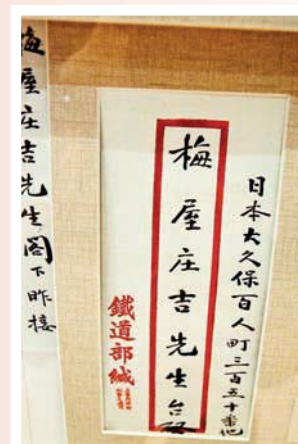 日本大久保百人町三百五十番地
梅屋庄吉先生台
鐵道部緘
梅屋庄吉先生閣下昨接